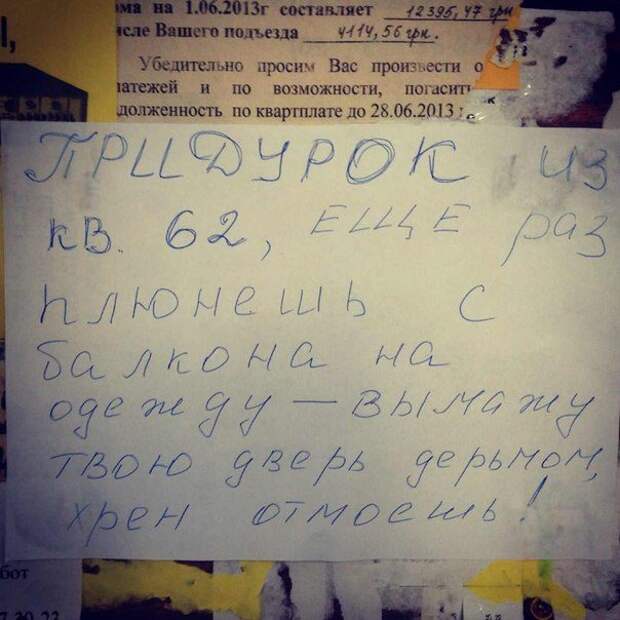 ома на 1.06.2013г составляет 12395,47 грн
исле Вашего подъезда 4114,56 грн.
Убедительно просим Вас произвести о
латежей и по возможности, погасить
долженность по квартплате до 28.06.2013
ПРИДУРОК ИЗ
КВ. 62, ЕЩЕ раз
плюнешь с
балкона на
одежду — вымажу
твою дверь дерьмом,
хрен отмоешь!
бот